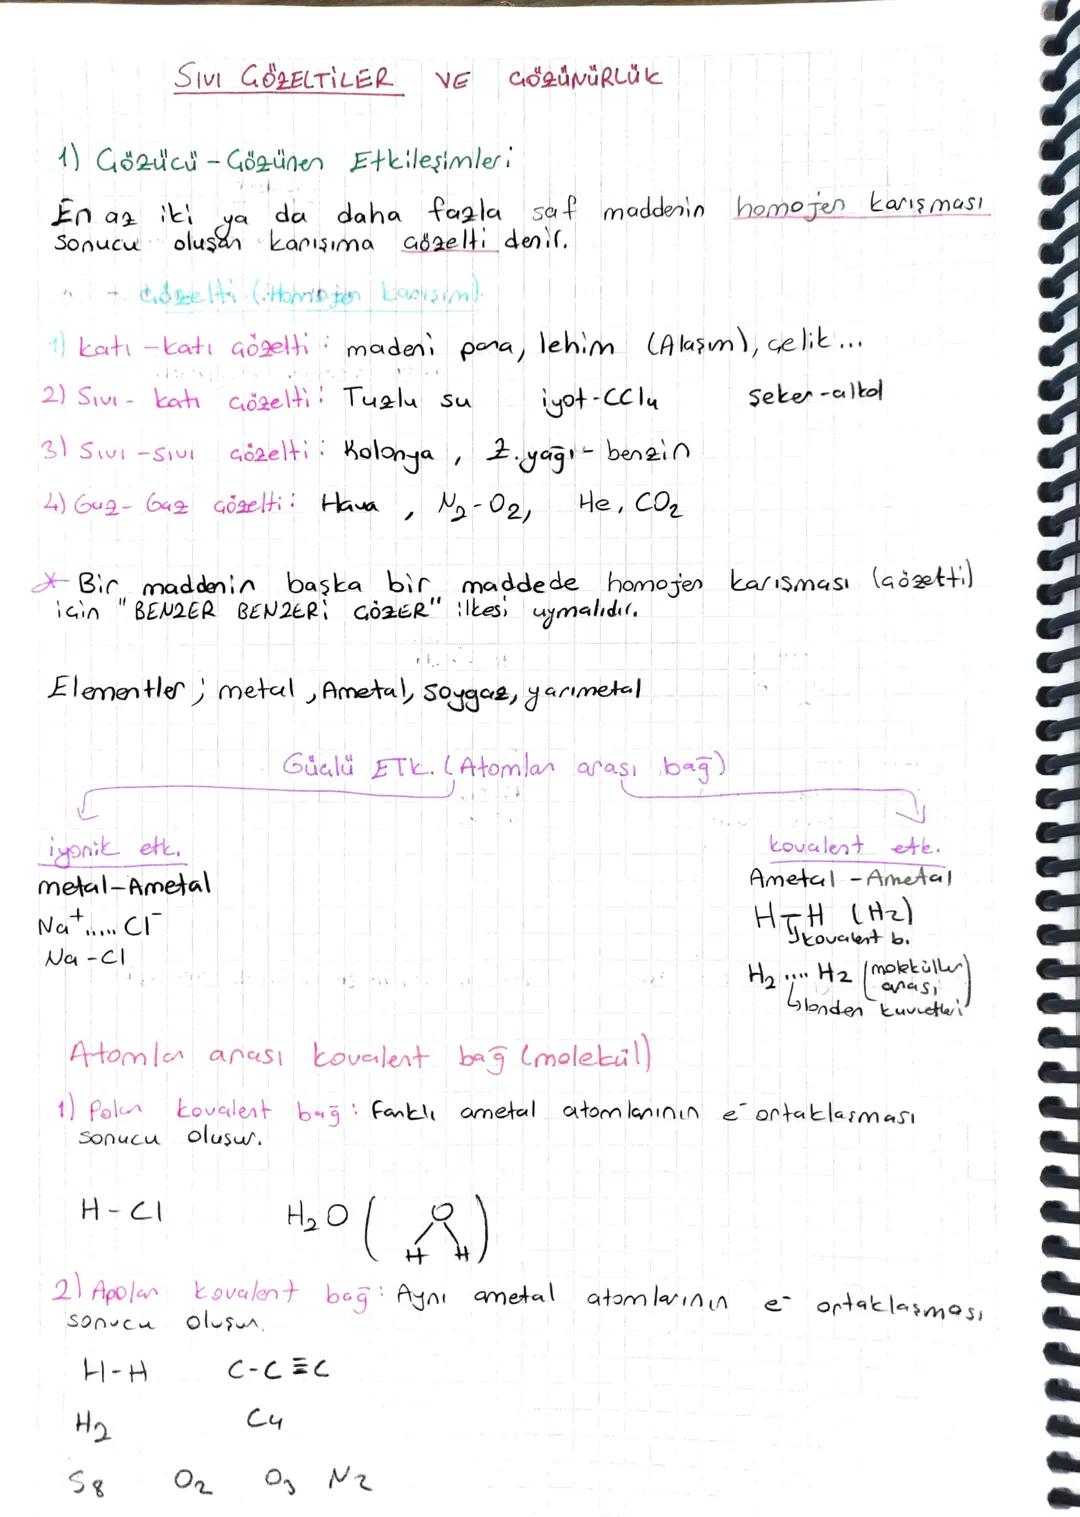 SIVI ÇÖZELTİLER VE ÇÖZÜNÜRLÜK
1) Çözücü - Çözünen Etkileşimleri
En az iki ya da daha fazla saf maddenin homojen karışması
sonucu oluşan karışıma çözelti denir.
→ Çözelti (Homojen karışım)
1) Katı - katı çözelti : madeni para, lehim (Alaşım), çelik...
2) Sıvı - katı çözelti : Tuzlu su iyot-CCl4 şeker-alkol
3) Sıvı - sıvı çözelti : Kolonya, Z.yağı - benzin
4) Gaz - Gaz çözelti : Hava, N2-O2, He, CO2
* Bir maddenin başka bir maddede homojen karışması (çözetti)
için "BENZER BENZERİ ÇÖZER" ilkesi uymalıdır.
Elementler ; metal, Ametal, soygaz, yarımetal
Güçlü ETK. (Atomlar arası bağ)
iyonik etk.
metal-Ametal
Na+ ..... Cl-
Na-Cl
kovalent etk.
Ametal - Ametal
H-H (H2)
↳kovalent b.
H2 .... H2 (moleküller arası)
↳londen kuvvetleri
Atomlar arası kovalent bağ (molekül)
1) Polar kovalent bağ : Farklı ametal atomlarının e- ortaklaşması
sonucu oluşur.
H-Cl H2O (O H H)
2) Apolar kovalent bağ : Aynı ametal atomlarının e- ortaklaşması
sonucu oluşur.
H-H C-C≡C
H2 C4
S8 O2 O3 N2